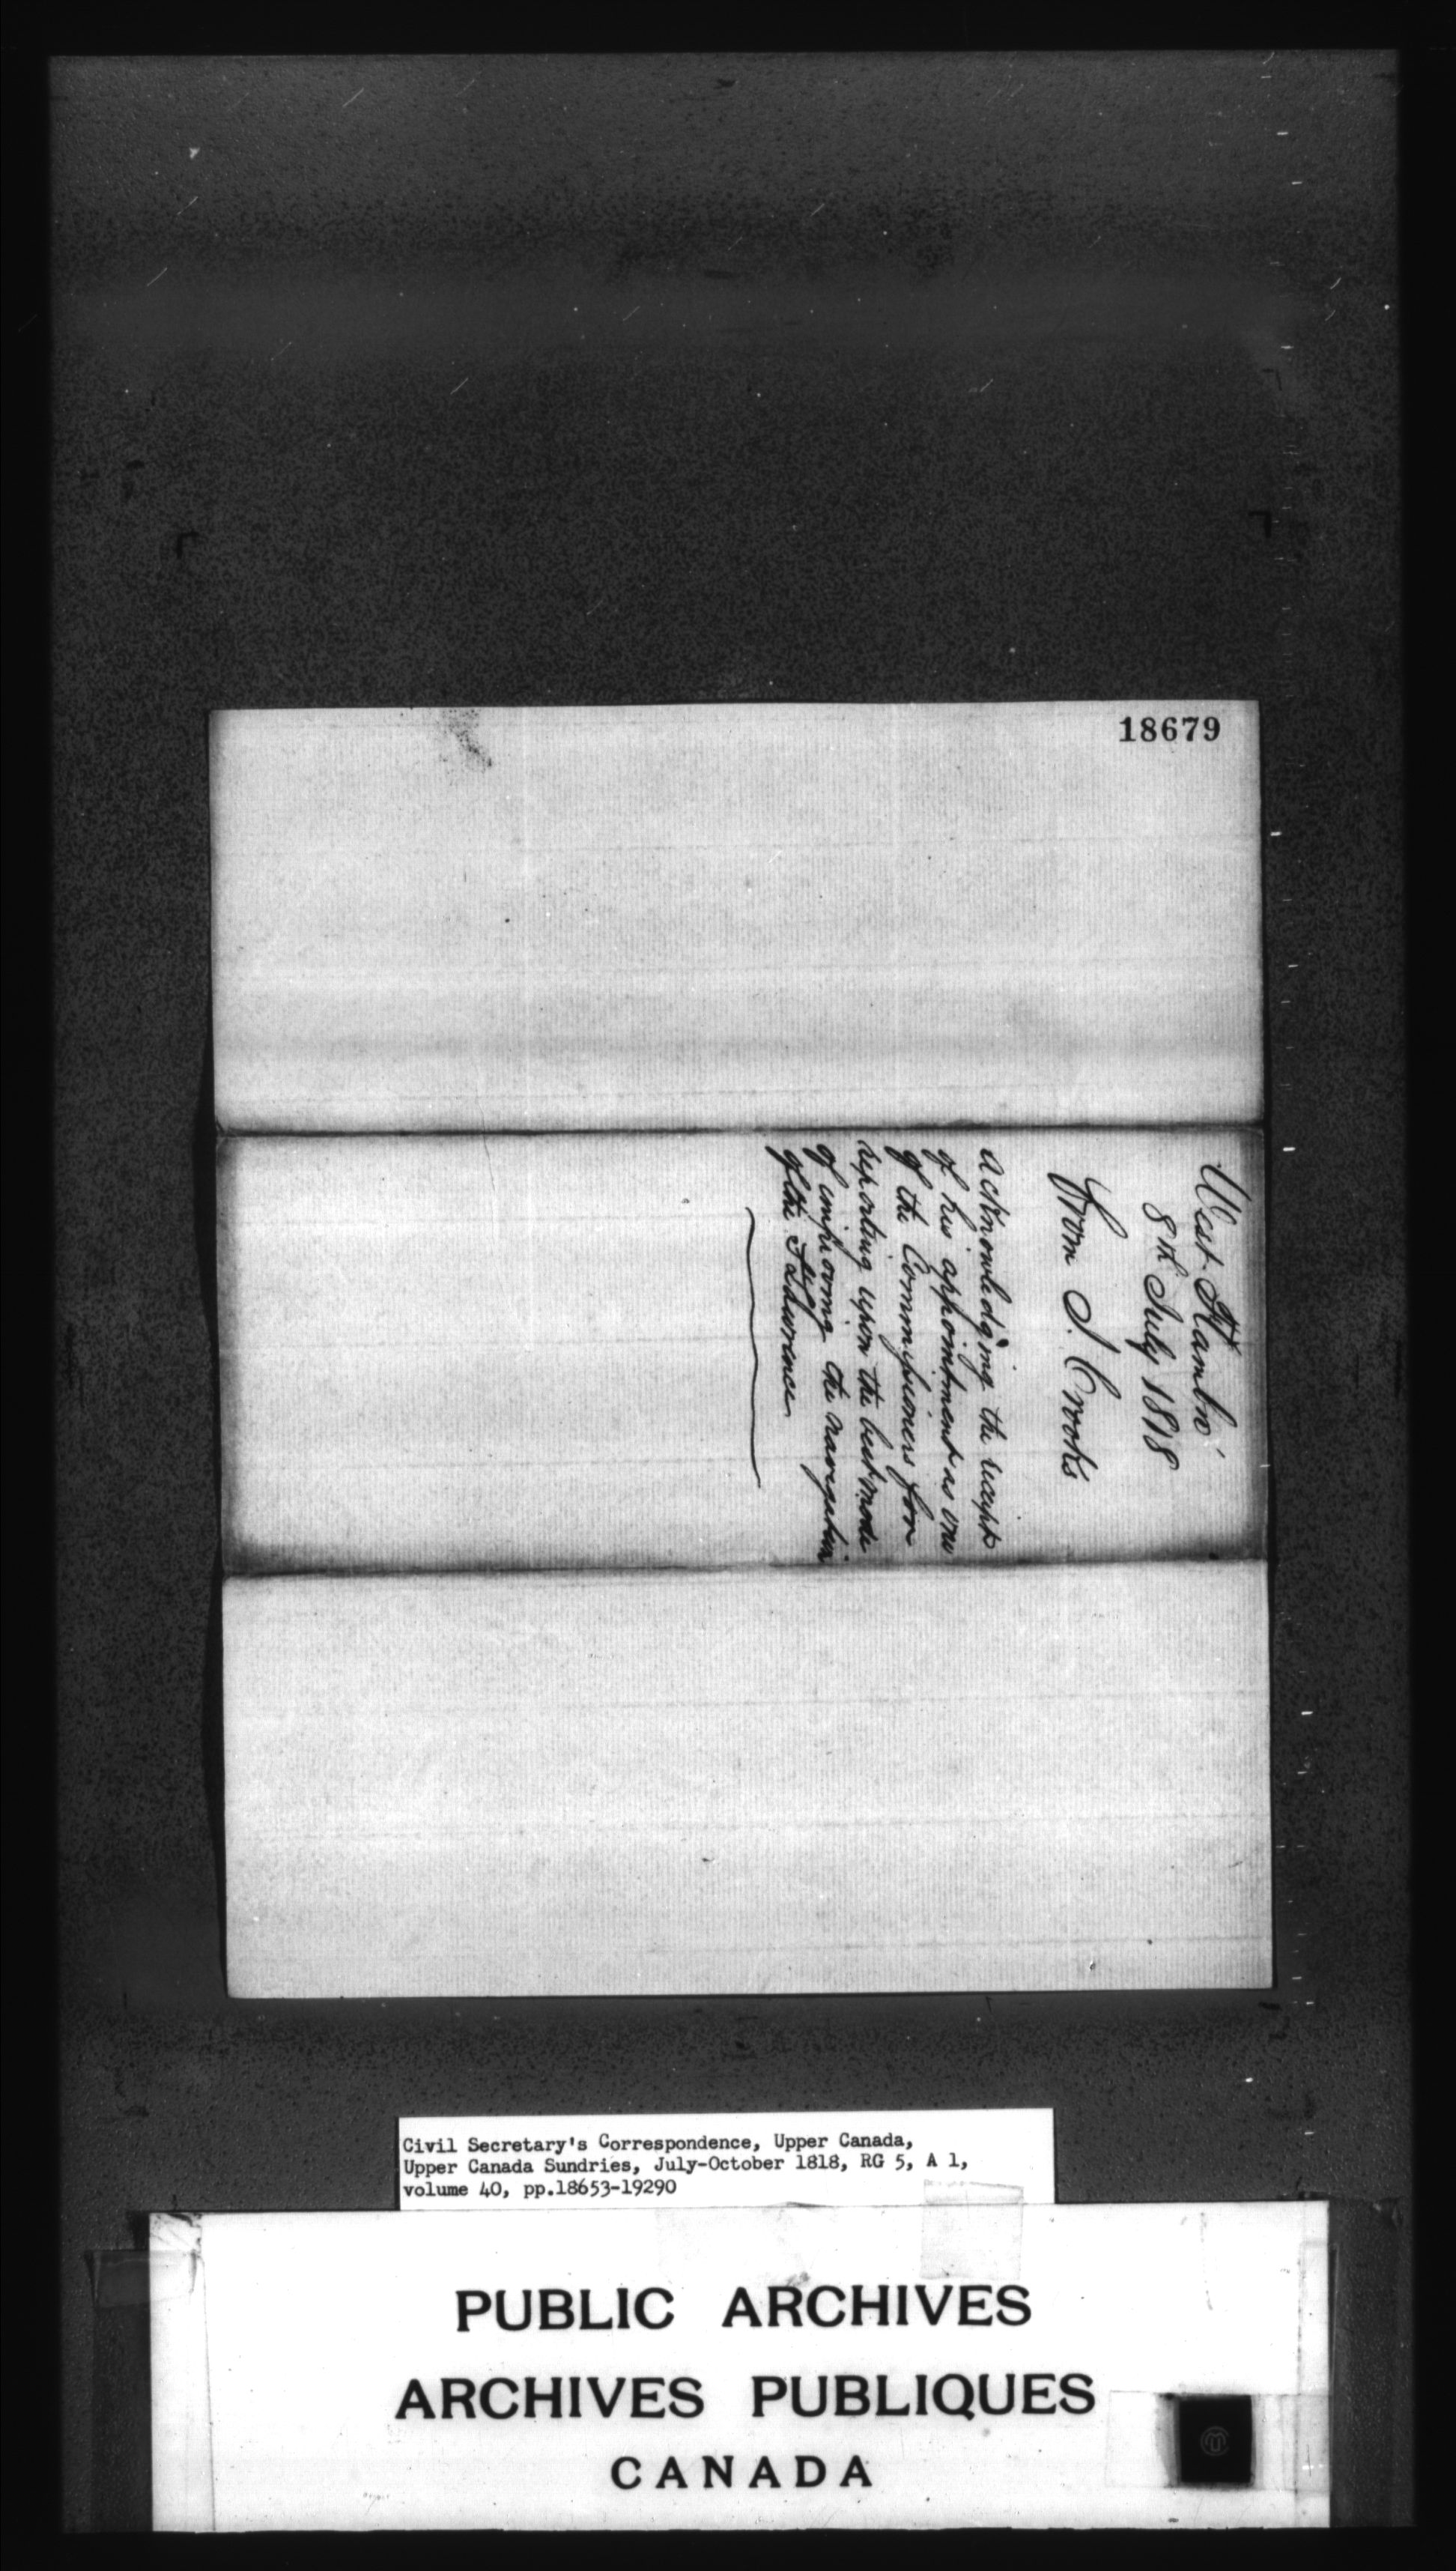 18679
West Flambro'
8th July 1818
From J. Crooks
Acknowledging the receipt
of his appointment as one
of the Commissioners for
reporting upon the best mode
of improving the navigation
of the St Lawrence
Civil Secretary's Correspondence, Upper Canada,
Upper Canada Sundries, July-October 1818, RG 5, A 1,
volume 40, pp.18653-19290
PUBLIC ARCHIVES
ARCHIVES PUBLIQUES
CANADA